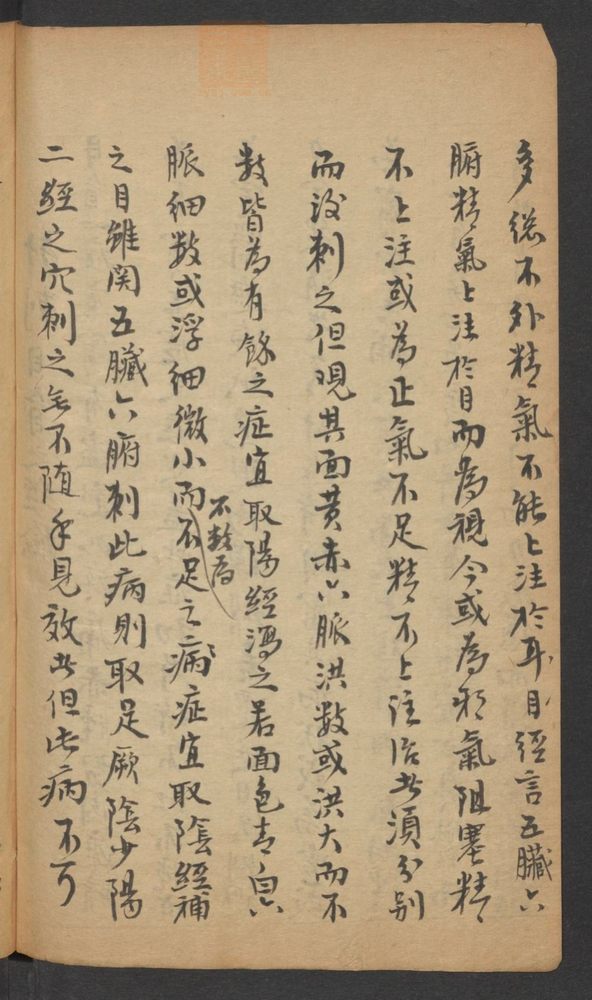 多總不外精氣不能上注於耳目經言五臟六
腑精氣上注於目而為視今或為邪氣阻塞精
不上注或為正氣不足精不上注治者須分別
而後刺之但觀其面黄赤六脈洪数或洪大而不
数皆為有餘之症宜取陽經瀉之若面色青白六
脈細数或浮細微小而不足之病症宜取陰經補
不数為
之目雖関五臟六腑刺此病則取足厥陰少陽
二經之穴刺之無不随手見效者但此病不可